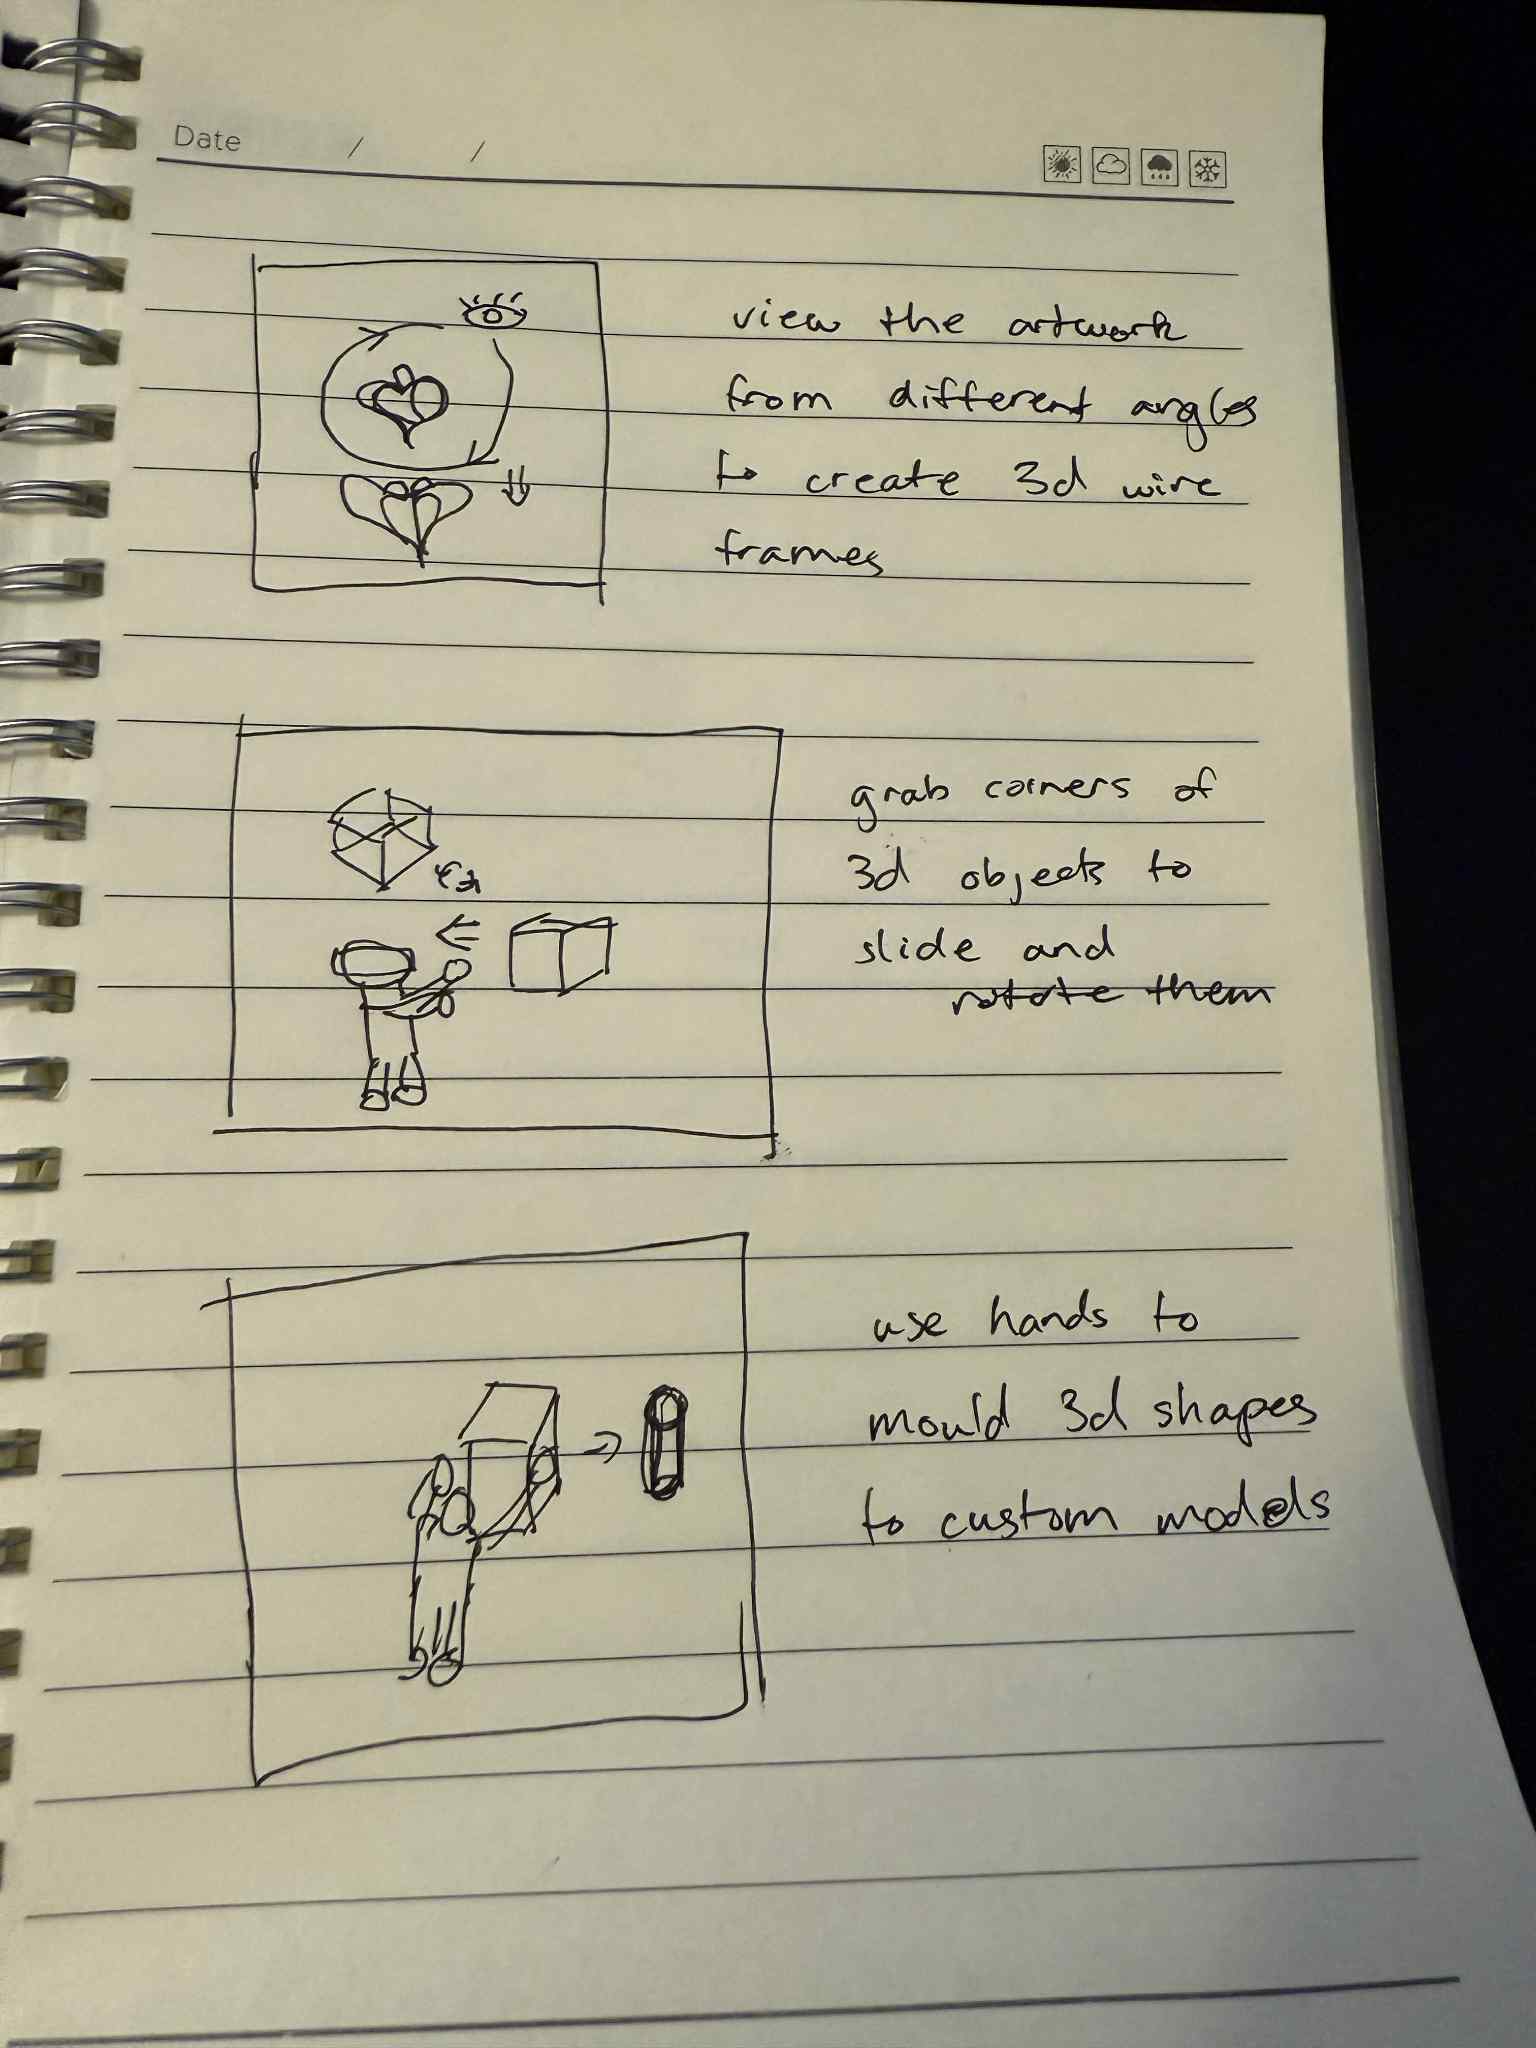 Date / /
view the artwork
from different angles
to create 3d wire
frames
grab corners of
3d objects to
slide and
rotate them
use hands to
mould 3d shapes
to custom models